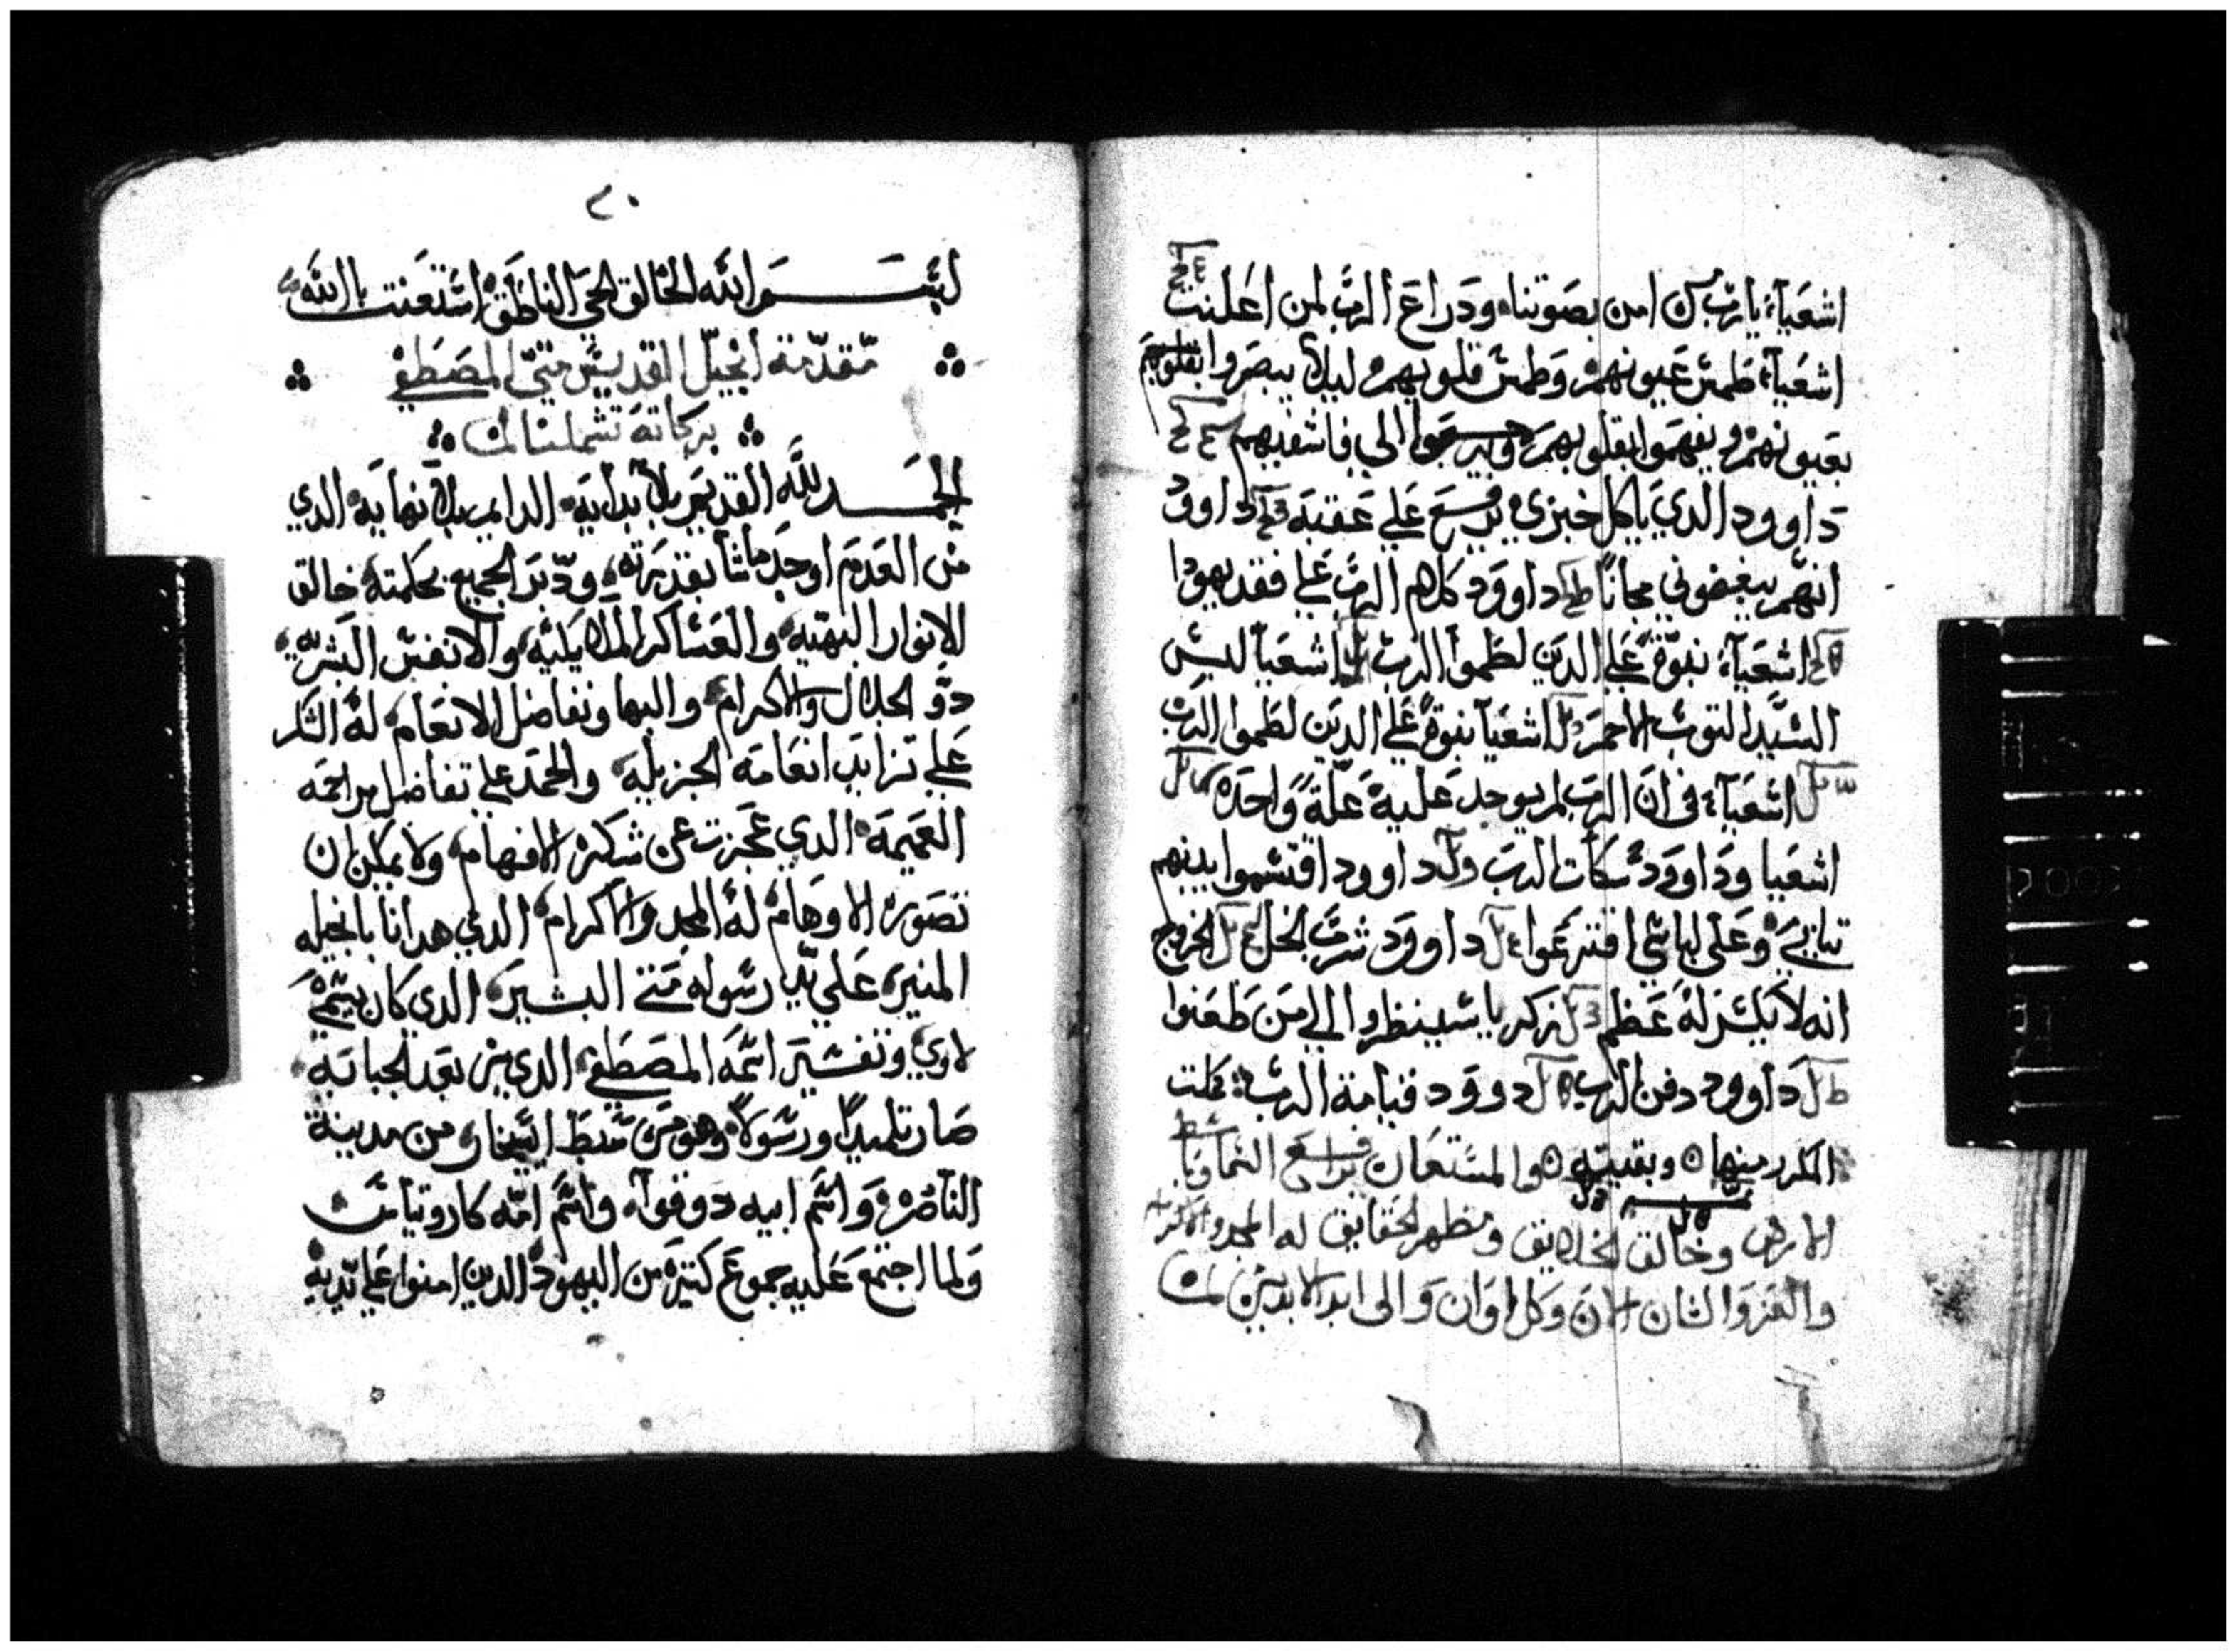 اشعياء يارب من امن بصوتنا ودراع الرب لمن اعلنت
اشعياء طمس عيونهم وطمس قلوبهم ليلا يبصروا
بعيونهم ويفهموا بقلوبهم ويرجعوا الي فاشفيهم
داوود الدي ياكل خبزي يرفع علي عقبه داوود
انهم يبغضوني مجانا داوود كلهم الرب علي فقد يهودا
اشعياء نبوة علي الدين لطموا الرب اشعيا لبس
السيد التوب الاحمر اشعيا نبوة علي الدين لطموا الرب
اشعياء في ان الرب لم يوجد عليه علة واحده
اشعيا وداوود سكات الرب داوود اقتسموا بينهم
تيابي وعلي لباسي اقترعوا داوود شرب الخل الخروج
انه لا يكسر له عظم زكريا سينظروا الي من طعنوا
داوود دفن الرب دوود قيامة الرب كملت
المكرر منها وبقيته والمستعان برافع السما وباسط
الارض وخالق الخلايق ومظهر الحقايق له المجد والاكرام
والعز والشان الان وكل اوان والى ابد الابدين امين
٢٠
بسم الله الخالق الحي الناطق استعنت بالله
مقدمة انجيل القديس متي المصطفي
بركاته تشملنا امين
الحمد لله القديم بلا بدايه الدايم بلا نهايه الدي
من العدم اوجد ما شا بقدرته ودبر الجميع بحكمته خالق
الانوار البهيه والعساكر الملايكيه والانفس البشريه
دو الجلال والاكرام والبها وتفاضل الانعام له الشكر
علي تزايد انعامه الجزيله والحمد علي تفاضل مراحمه
العميمه الدي عجزت عن شكره الافهام ولا يمكن ان
تصوره الاوهام له المجد والاكرام الدي هدانا بانجيله
المنير علي يد رسوله متي البشير الدي كان يسمي
لاوي وتفسير اسمه المصطفي الدي من بعد الجبايه
صار تلميدا ورسولا وهو من سبط ايساخار من مدينة
الناصره واسم ابيه دوقوا واسم امه كاروتياس
ولما اجتمع عليه جموع كتيره من اليهود الدين امنوا علي يديه